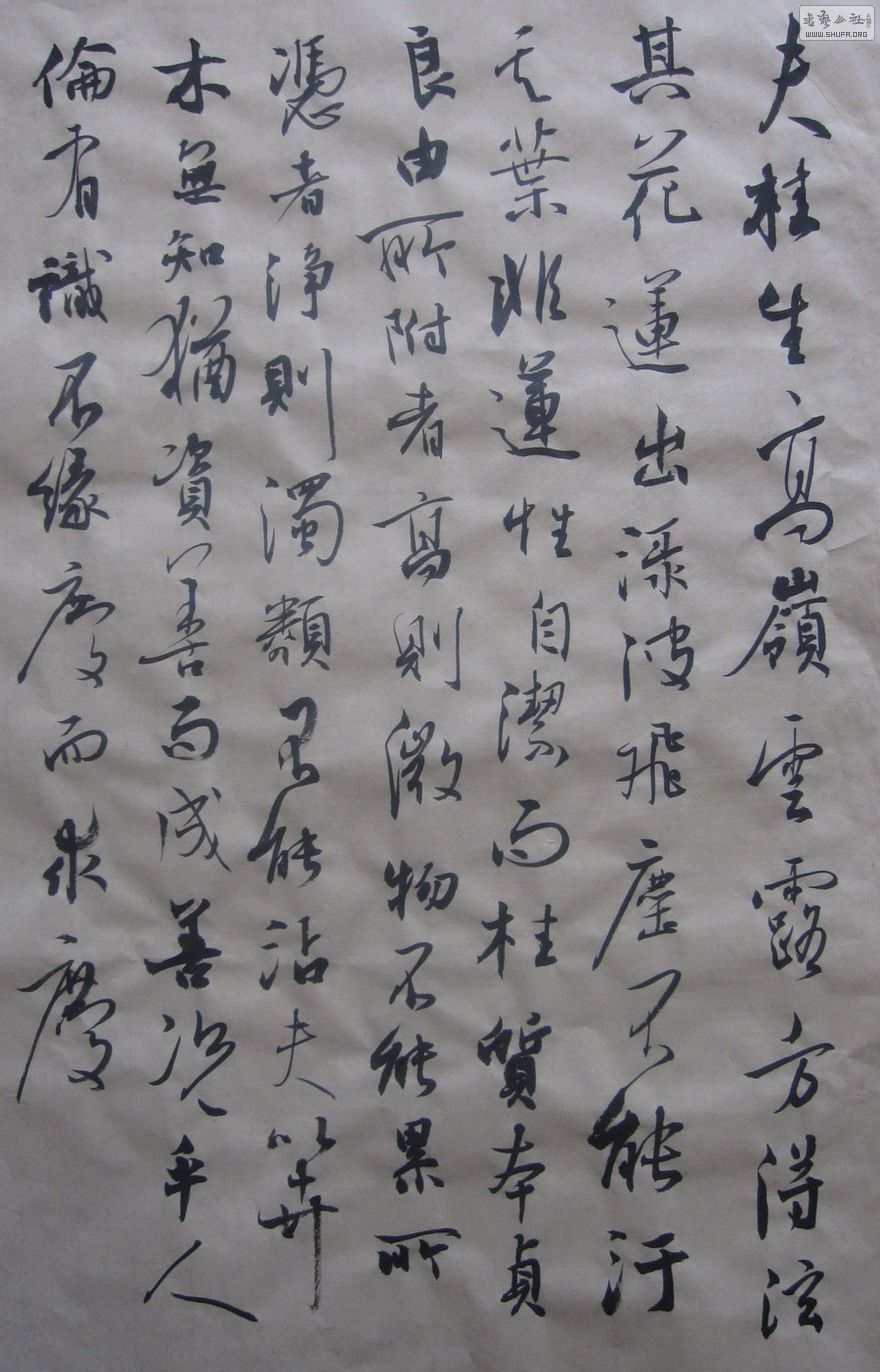 夫桂生高嶺雲露方得泫
其花蓮出淥波飛塵不能汙
其葉非蓮性自潔而桂質本貞
良由所附者高則微物不能累所
憑者淨則濁類不能沾夫以卉
木無知猶資善而成善況乎人
倫有識不緣慶而求慶
書藝公社
WWW.SHUFA.ORG